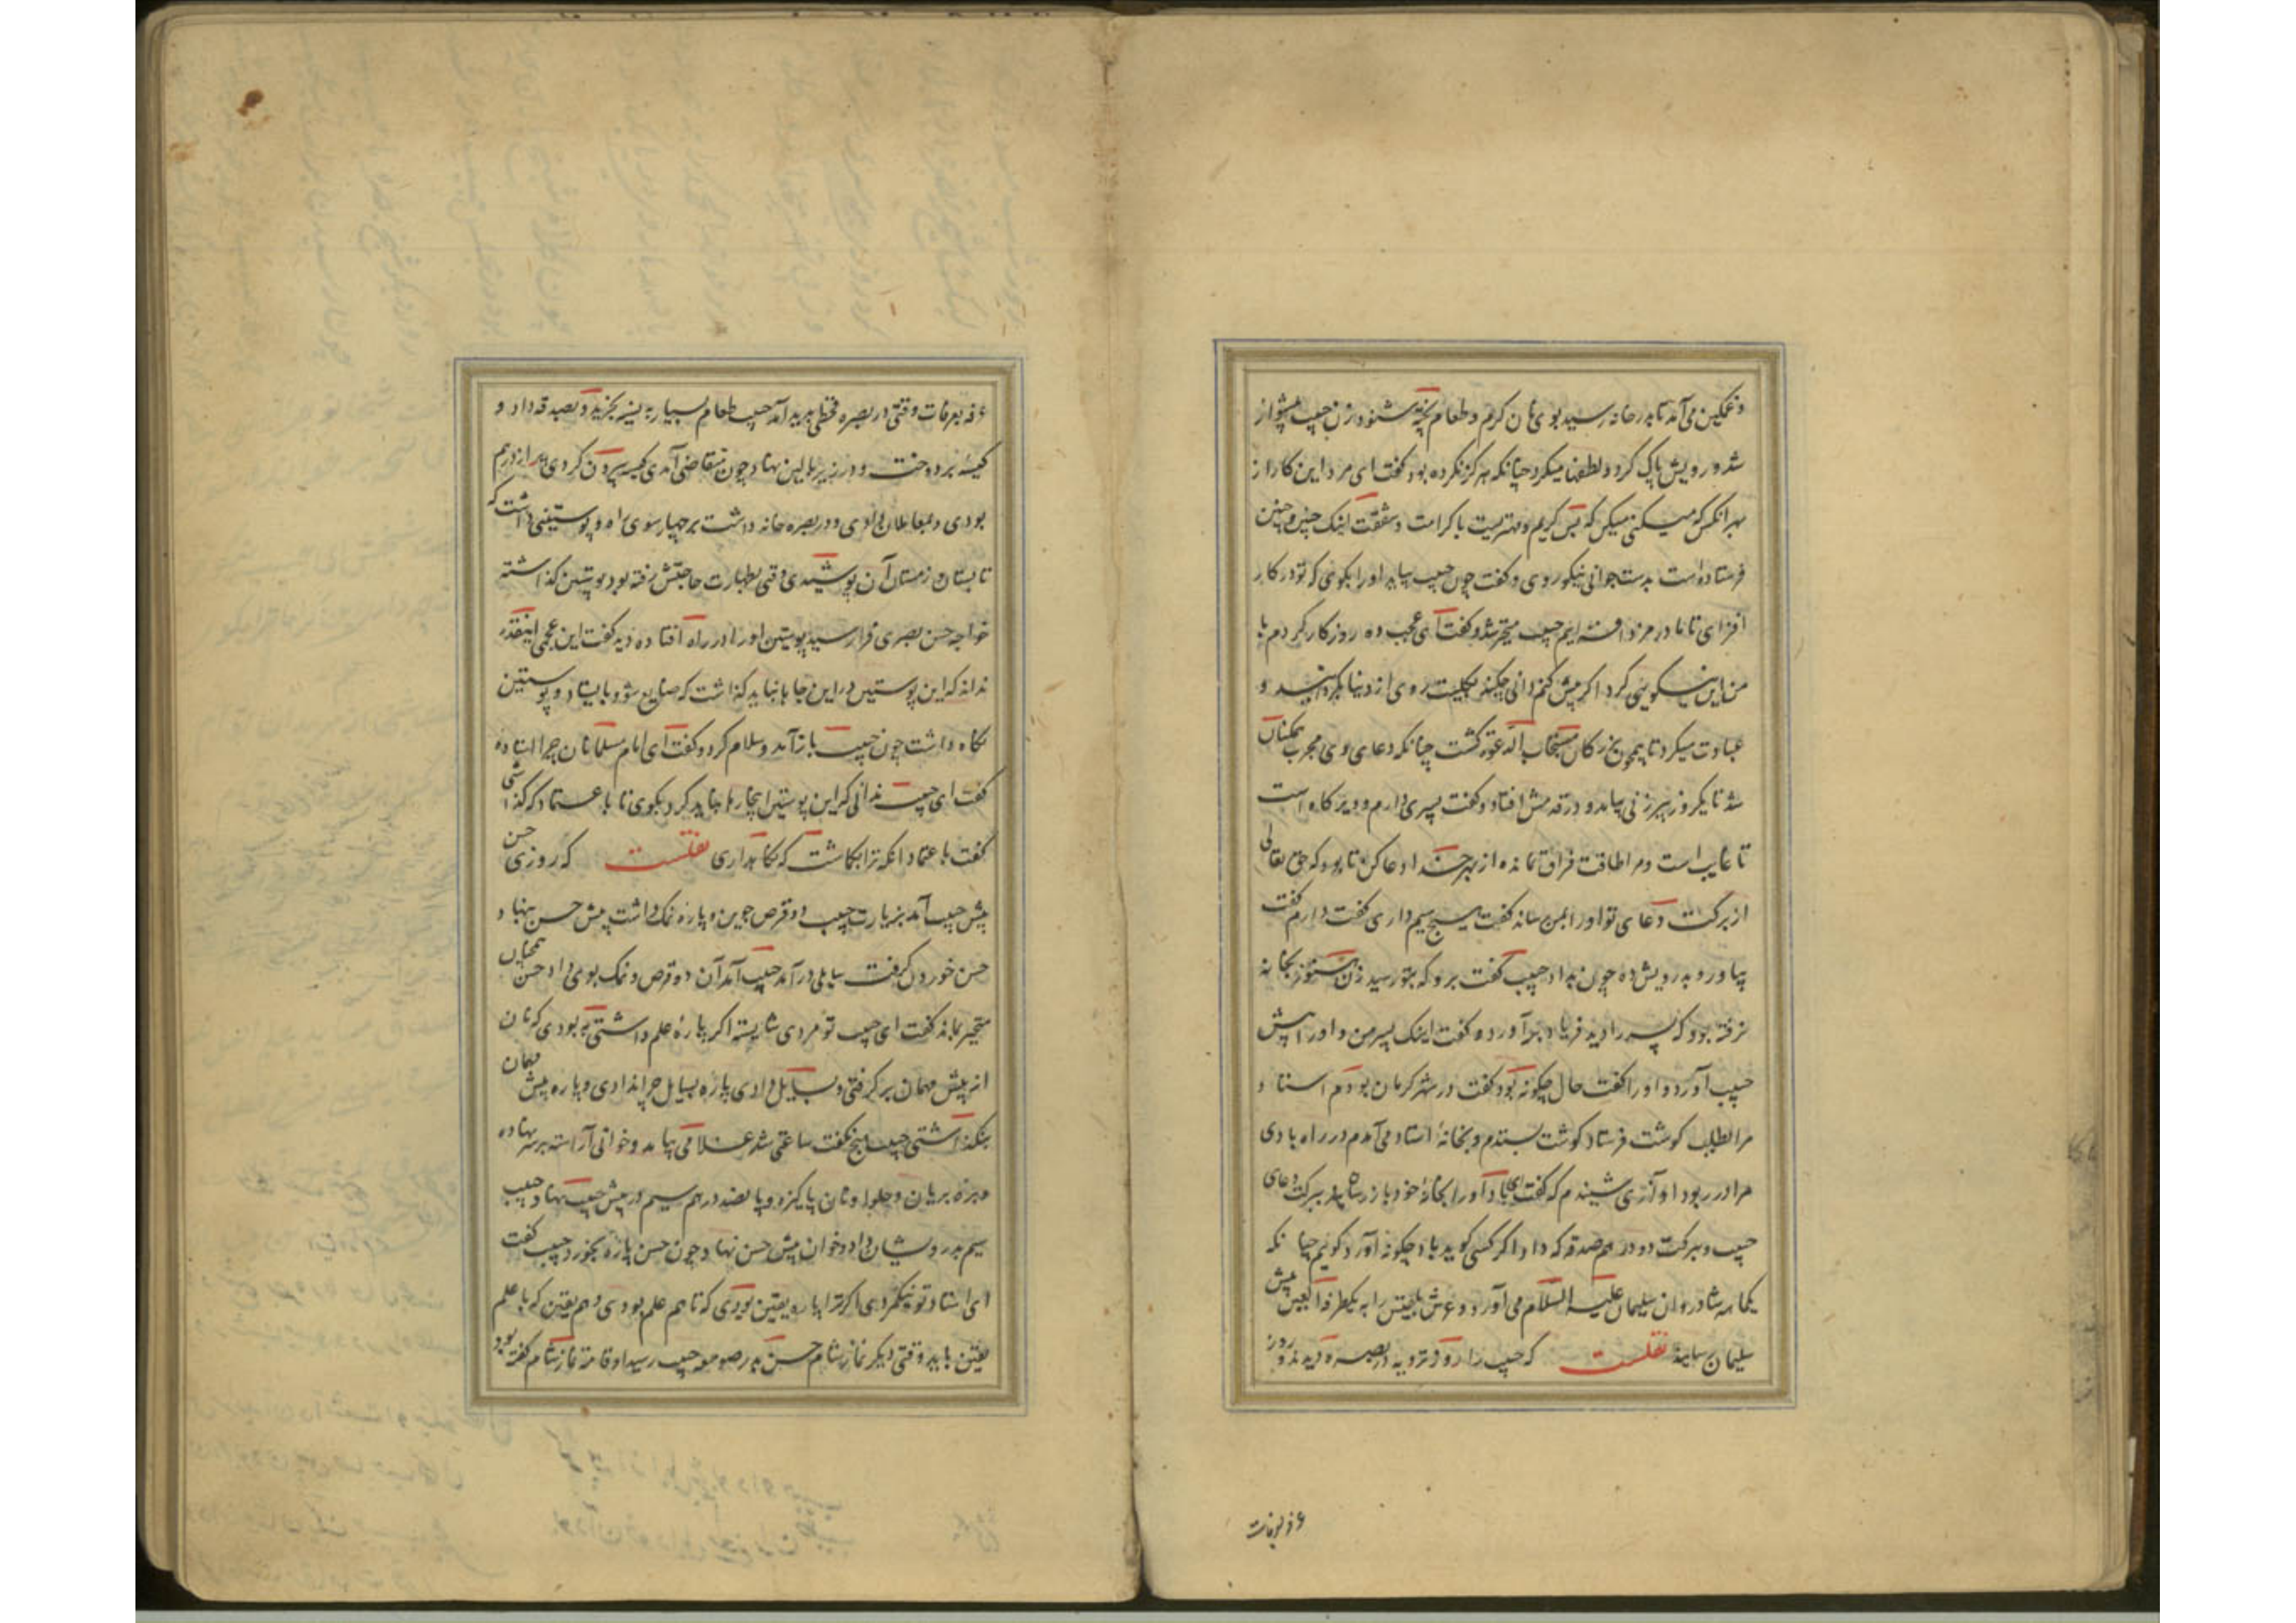 و غمگین می آمد تا بدر خانه رسید بوی نان کرم و طعام پخته شنود زن حبیب پیشواز
شد و رویش پاک کرد و لطفها میکرد چنانکه هرکز نکرده بود کفت ای مرد این کار از
بهر انکس که میکنی میکن که بس کریم و مهتریست با کرامت و شفقت اینک چنین و چنین
فرستاده است بدست جوانی نیکو روی و کفت چون حبیب بیاید او را بکوی که تو در کار
افزای تا ما در مزد افزایم حبیب متحیر شد و کفت ای عجب ده روز کار کردم با
من این نیکویی کرد اکر بیش کنم دانی چکند بکلیت روی از دنیا بکردانید و
عبادت میکرد تا همچون بزرکان مستجاب الدعوة کشت چنانکه دعای وی مجرب همکنان
شد تا یکروز پیرزنی بیامد و در قدمش افتاد و کفت پسری دارم و دیر کاه است
تا غایب است و مرا طاقت فراق نمانده از بهر خدا دعا کن تا بود که حق تعالی
از برکت دعای تو او را بمن رساند کفت هیچ سیم داری کفت دارم کفت
بیاور و بدرویش ده چون بداد حبیب کفت برو که بتو رسید زن هنوز بخانه
نرفته بود که پسر را دید فریاد برآورده کفت اینک پسر من و او را پیش
حبیب آورد و او را کفت حال چکونه بود کفت در شهر کرمان بودم استاد
مرا بطلب کوشت فرستاد کوشت بستدم و بخانهٔ استاد می آمدم در راه بادی
مرا در ربود آوازی شنیدم که کفت ای باد او را بخانهٔ خود باز رسان ببرکت دعای
حبیب و ببرکت دو درهم صدقه که داد اکر کسی کوید باد چکونه آورد کویم چنانکه
یکماهه شادروان سلیمان علیه السلام می آورد و عرش بلقیس را به یک طرفة العین پیش
سلیمان رسانید نقلست که حبیب را روز ترویه در بصره دیدند و روز
عرفه بعرفات
عرفه بعرفات وقتی در بصره قحطی پدید آمد حبیب طعام بسیار به نسیه بخرید و بصدقه داد و
کیسهٔ بر دوخت و در زیر بالین نهاد چون بتقاضی آمدی کیسه بیرون کردی پر از درم
بودی و بمعاملان دادی و در بصره خانه داشت بر چهار سوی راه و پوستینی داشت که
تابستان و زمستان آن پوشیدی وقتی بطهارت حاجتش رفته بود پوستین کذاشته
خواجه حسن بصری فرا رسید پوستین او را در راه افتاده دید کفت این عجمی اینقدر
نداند که این پوستین در این جا نباید کذاشت که ضایع شود بایستاد و پوستین
نکاه داشت چون حبیب باز آمد و سلام کرد و کفت ای امام مسلمانان چرا استاده
کفت ای حبیب ندانی که این پوستین اینجا رها نباید کرد بکوی تا باعتماد که کذاشتی
کفت باعتماد انکه ترا بکماشت که نکاهداری نقلست که روزی حسن
پیش حبیب آمد بزیارت حبیب دو قرص جوین و پارهٔ نمک داشت پیش حسن بنهاد
حسن خوردن کرفت سایلی در آمد حبیب آن دو قرص و نمک بوی داد حسن همچنان
متحیر بماند کفت ای حبیب تو مردی شایسته اکر پارهٔ علم داشتی به بودی که نان
از پیش مهمان بر کرفتی و بسایل دادی پاره بسایل چرا ندادی و پاره پیش مهمان
بنکذاشتی حبیب هیچ نکفت ساعتی شد غلامی بیامد و خوانی آراسته بر سر نهاده
و بره بریان و حلوا و نان پاکیزه و پانصد درهم سیم در پیش حبیب نهاد حبیب
سیم بدرویشان داد و خوان پیش حسن نهاد چون حسن پارهٔ بخورد حبیب کفت
ای استاد تو نیکمردی اکر ترا پاره یقین بودی که تا هم علم بودی و هم یقین که با علم
یقین باید وقتی دیکر نماز شام حسن بدر صومعه حبیب رسید او قامة نماز شام کفته بود